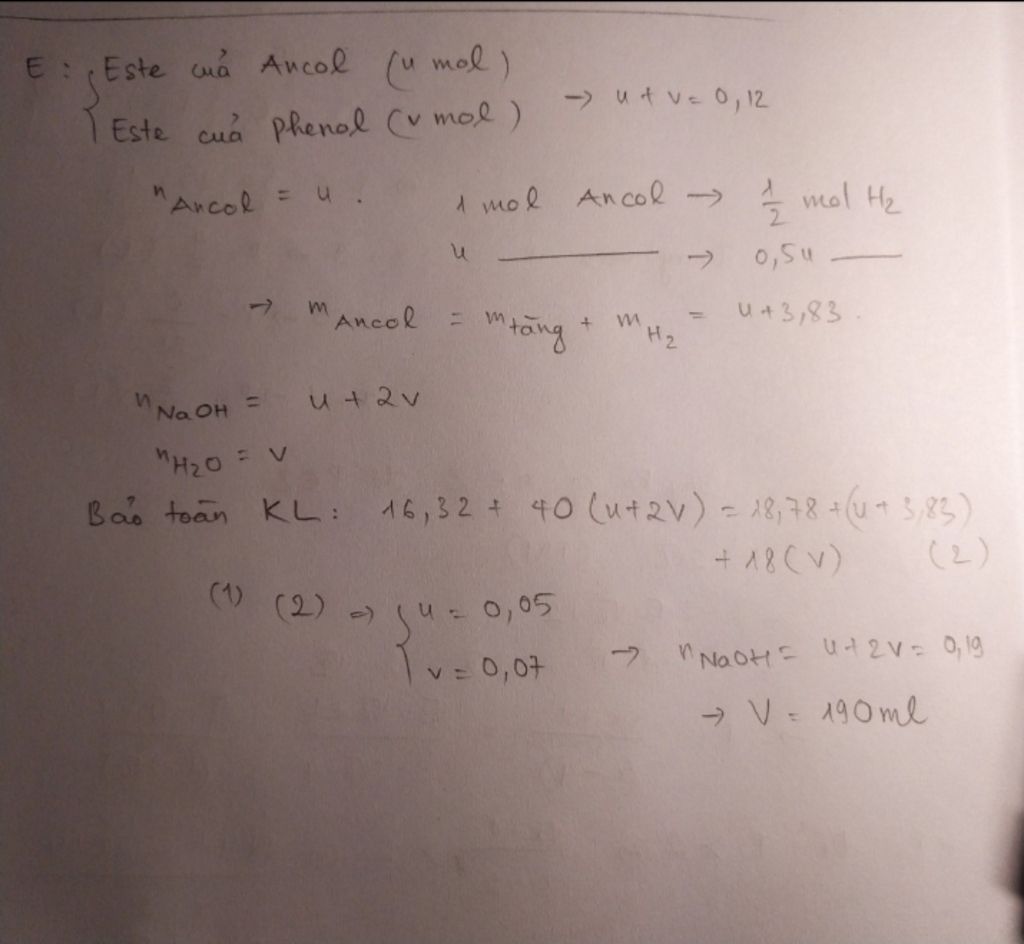 E : { Este cuả Ancol (u mol)
Este cuả phenol (v mol) → u + v = 0,12
n Ancol = u . 1 mol Ancol → 1/2 mol H2
u —— → 0,5u ——
→ m Ancol = m tăng + m H2 = u + 3,83 .
n NaOH = u + 2v
n H2O = v
Bảo toàn KL: 16,32 + 40 (u+2v) = 18,78 + (u + 3,83)
+ 18(v) (2)
(1) (2) => { u = 0,05
v = 0,07 → n NaOH = u + 2v = 0,19
→ V = 190ml